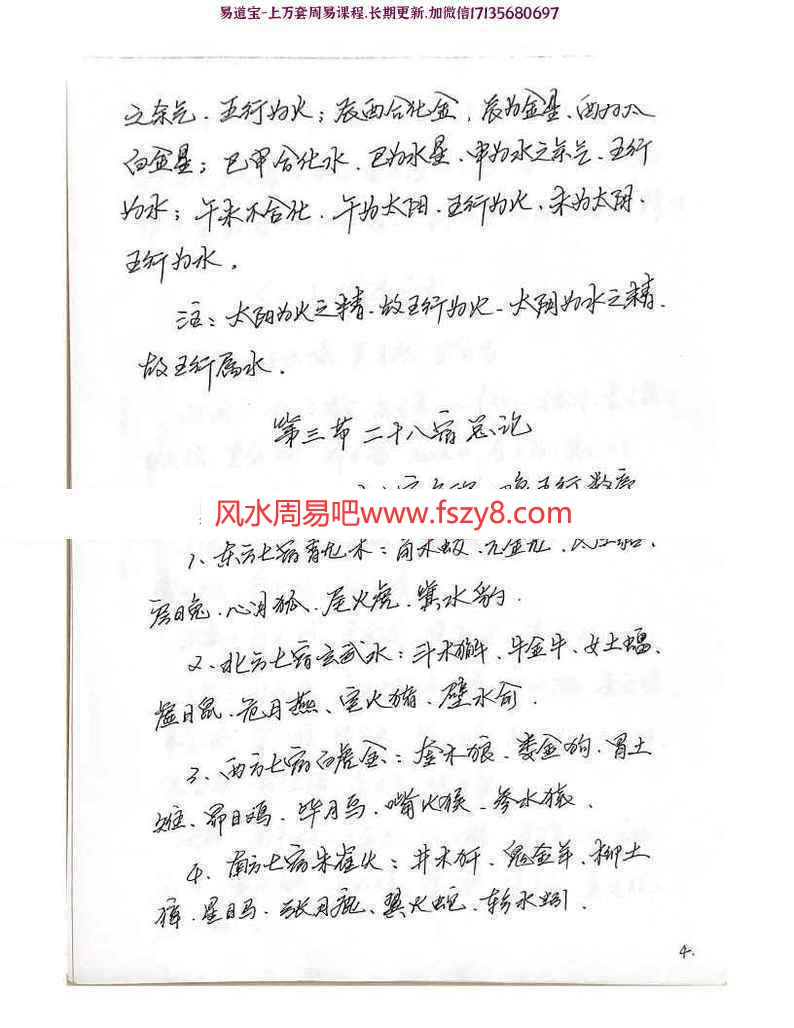 易道宝-上万套周易课程.长期更新.加微信17135680697
之余气.五行为火；辰酉合化金，辰为金星.酉为太
白金星；巳申合化水.巳为水星.申为水之余气.五行
为水；午未不合化.午为太阳.五行为火.未为太阴.
五行为水.
注：太阳为火之精.故五行为火.太阴为水之精.
故五行属水.
第三节 二十八宿总论
风水周易吧www.fszy8.com
1、东方七宿青龙木：角木蛟.亢金龙.
房日兔.心月狐.尾火虎.箕水豹.
2、北方七宿玄武水：斗木獬、牛金牛、女土蝠、
虚日鼠.危月燕、室火猪.壁水俞.
3、西方七宿白虎金：奎木狼.娄金狗.胃土
雉.昴日鸡.毕月乌.嘴火猴.参水猿.
4、南方七宿朱雀火：井木犴、鬼金羊.柳土
獐.星日马.张月鹿、翼火蛇.轸水蚓.
4.